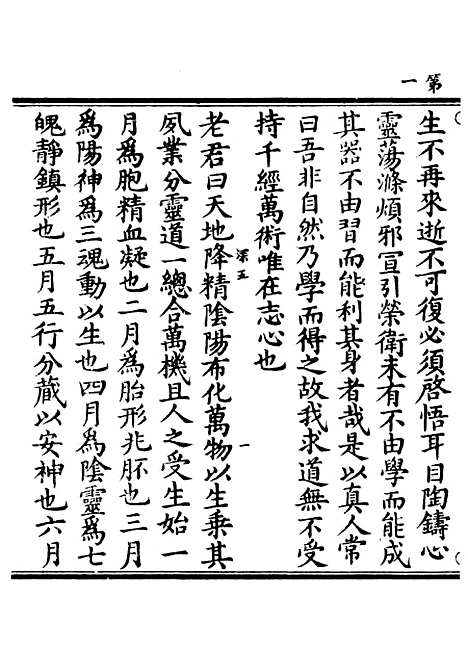 第一
生不再來逝不可復必須啓悟耳目陶鑄心
靈蕩滌煩邪宣引榮衛未有不由學而能成
其器不由習而能利其身者哉是以真人常
曰吾非自然乃學而得之故我求道無不受
持千經萬術唯在志心也
染五
一
老君曰天地降精陰陽布化萬物以生乗其
夙業分靈道一總合萬機且人之受生始一
月爲胞精血凝也二月爲胎形兆胚也三月
爲陽神爲三魂動以生也四月爲陰靈爲七
魄靜鎮形也五月五行分藏以安神也六月